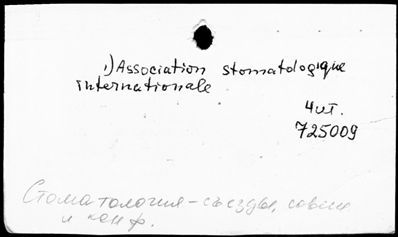 1) Association stomatologique
internationale
725009
Стоматология - съезды, совещ
и конф.